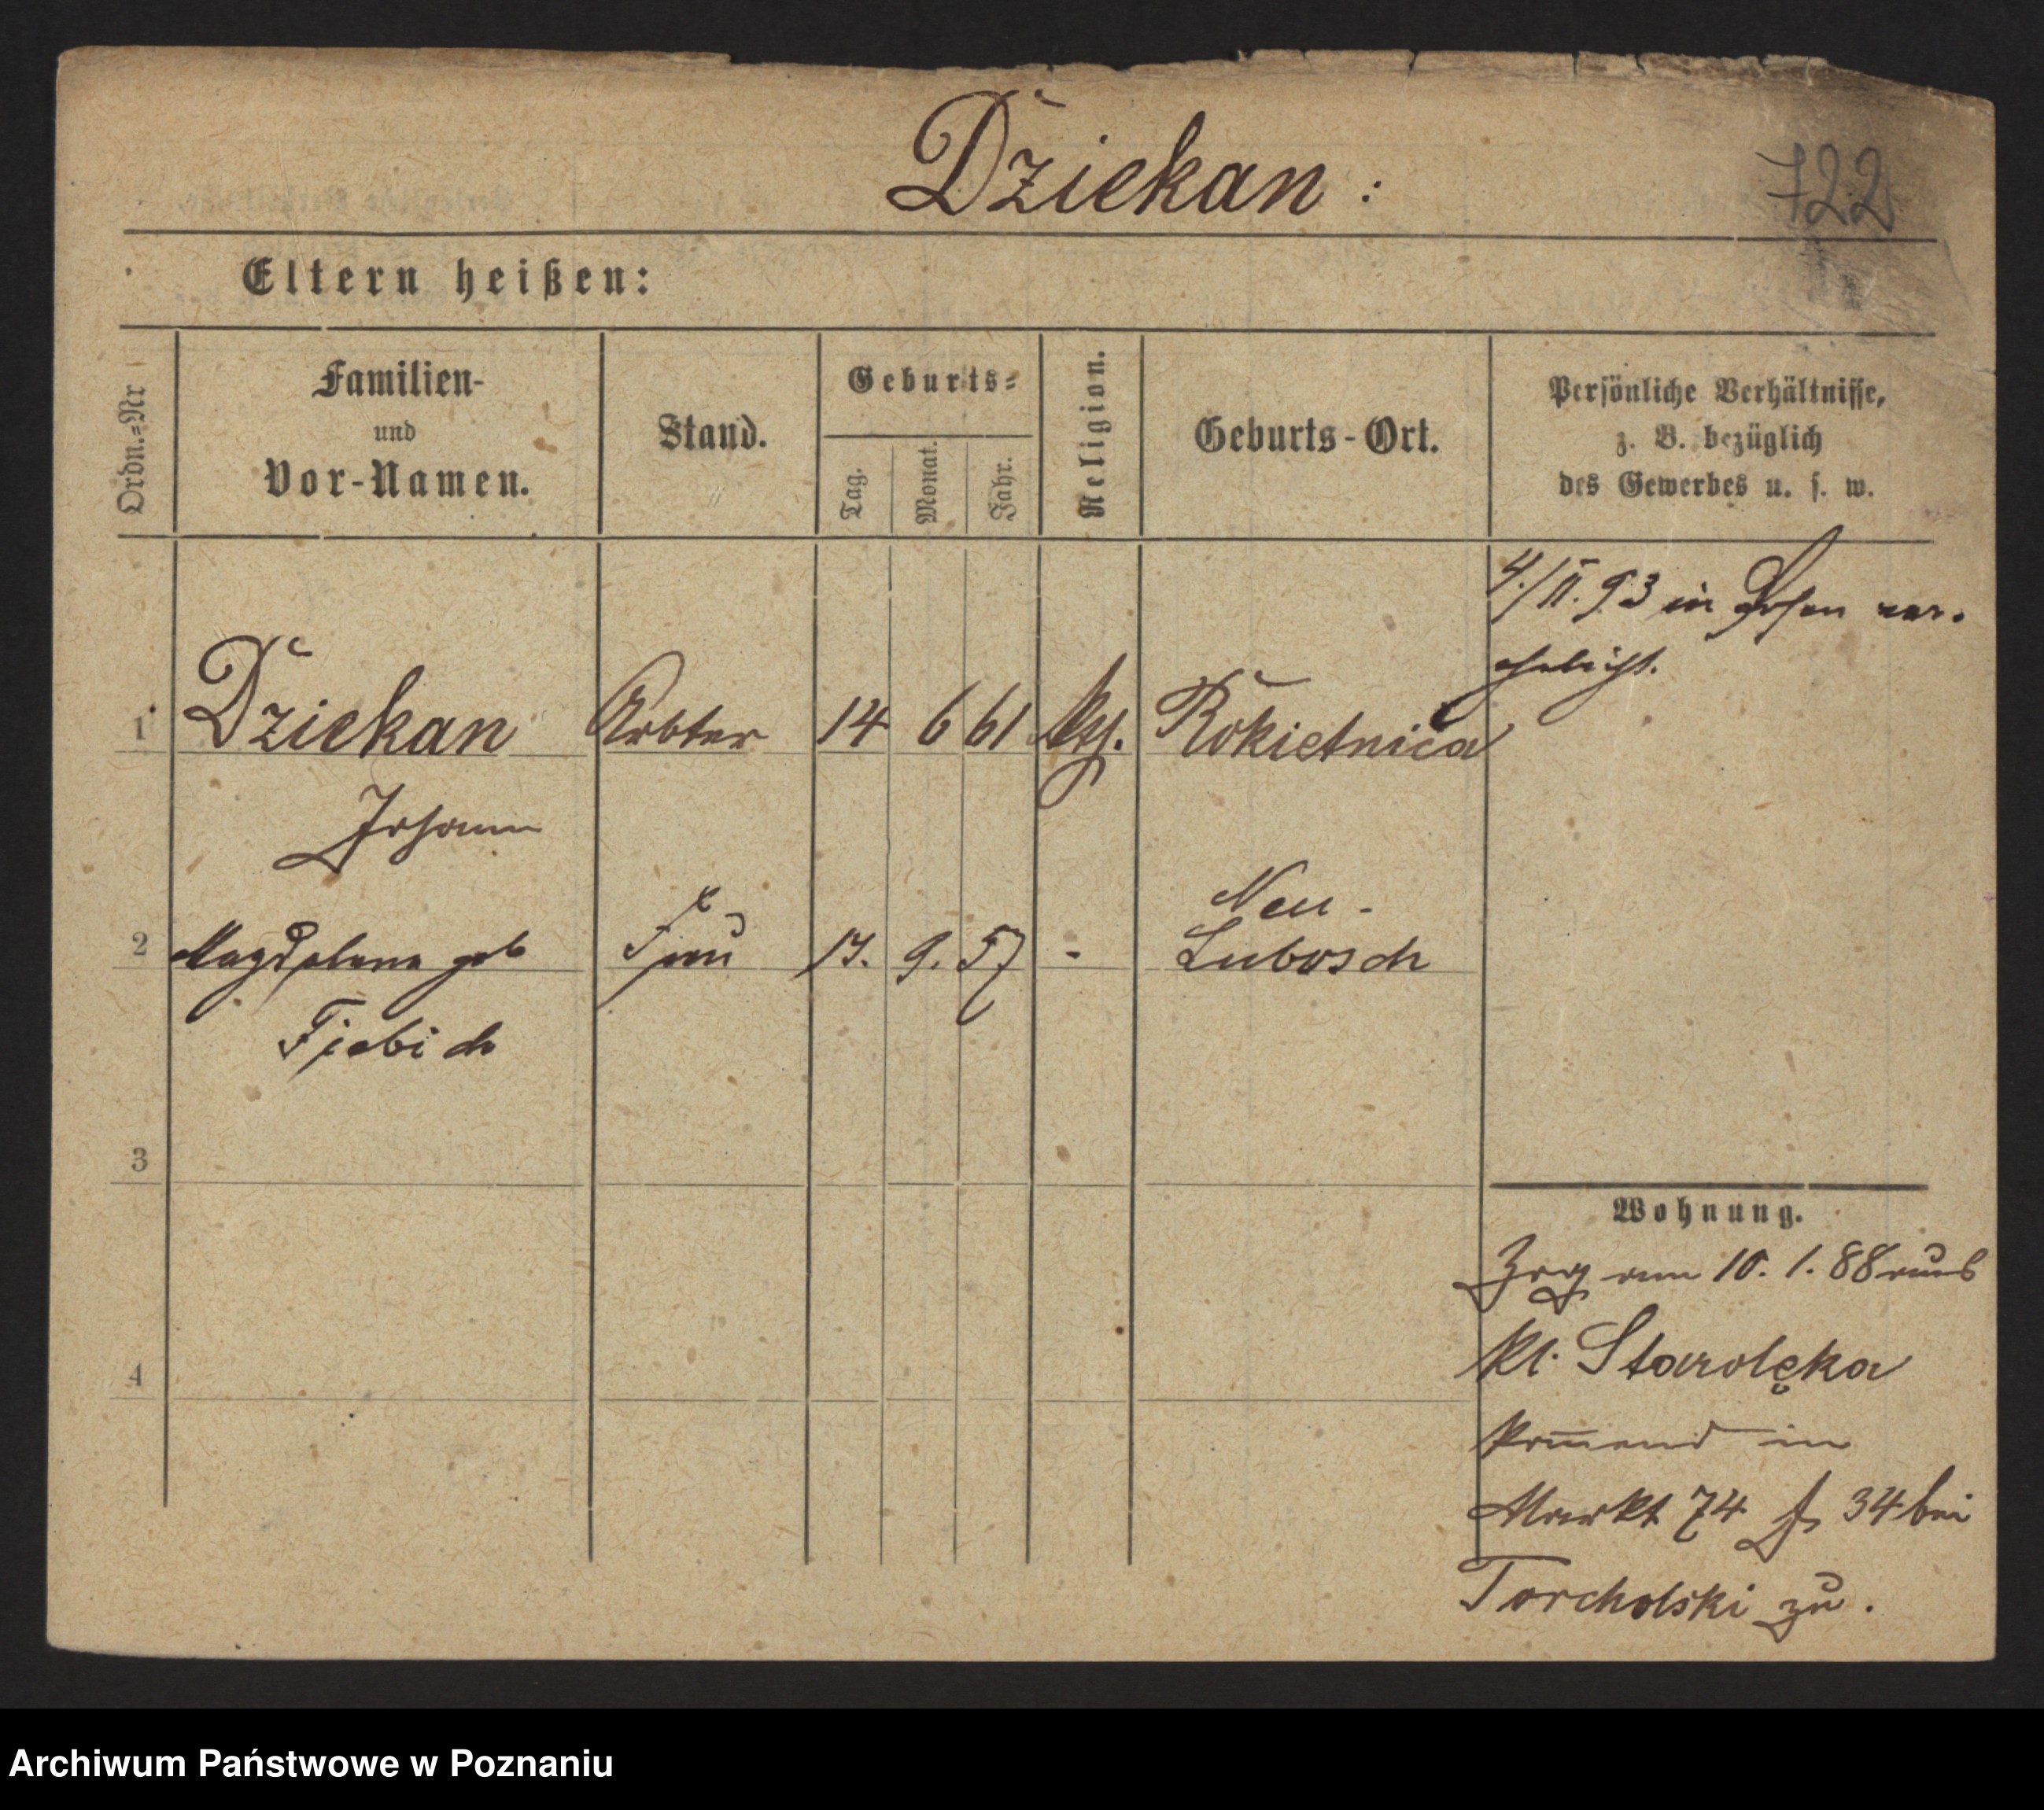 Dziekan :
722
Eltern heißen:
Ordn.=Nr
Familien-
und
Vor-Namen.
Stand.
Geburts=
Tag.
Monat.
Jahr.
Religion.
Geburts-Ort.
Persönliche Verhältnisse,
z. B. bezüglich
des Gewerbes u. s. w.
4./II. 93 in Posen ver-
ehelicht.
1 Dziekan Arbter 14 6 61 kth. Rokietnica
Johann
2 Magdalena geb Frau 17. 9. 57 - Neu-
Lubosch
Fiebich
3
4
Wohnung.
Zog am 10. 1. 88 aus
Kl. Starolęka
kom̄end in
Markt 74 34 bei
Torcholski zu.
Archiwum Państwowe w Poznaniu